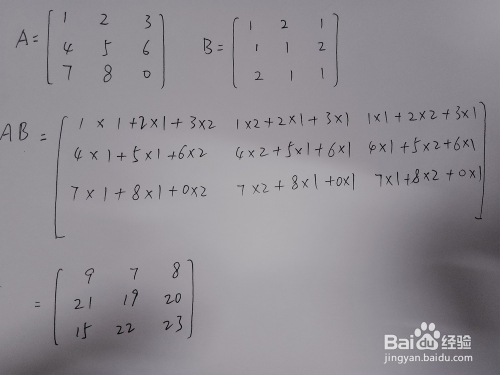 A = [ 1 2 3 B = [ 1 2 1
4 5 6 1 1 2
7 8 0 ] 2 1 1 ]
AB = [ 1×1+2×1+3×2 1×2+2×1+3×1 1×1+2×2+3×1
4×1+5×1+6×2 4×2+5×1+6×1 4×1+5×2+6×1
7×1+8×1+0×2 7×2+8×1+0×1 7×1+8×2+0×1 ]
= [ 9 7 8
21 19 20
15 22 23 ]
Bai百度经验
jingyan.baidu.com